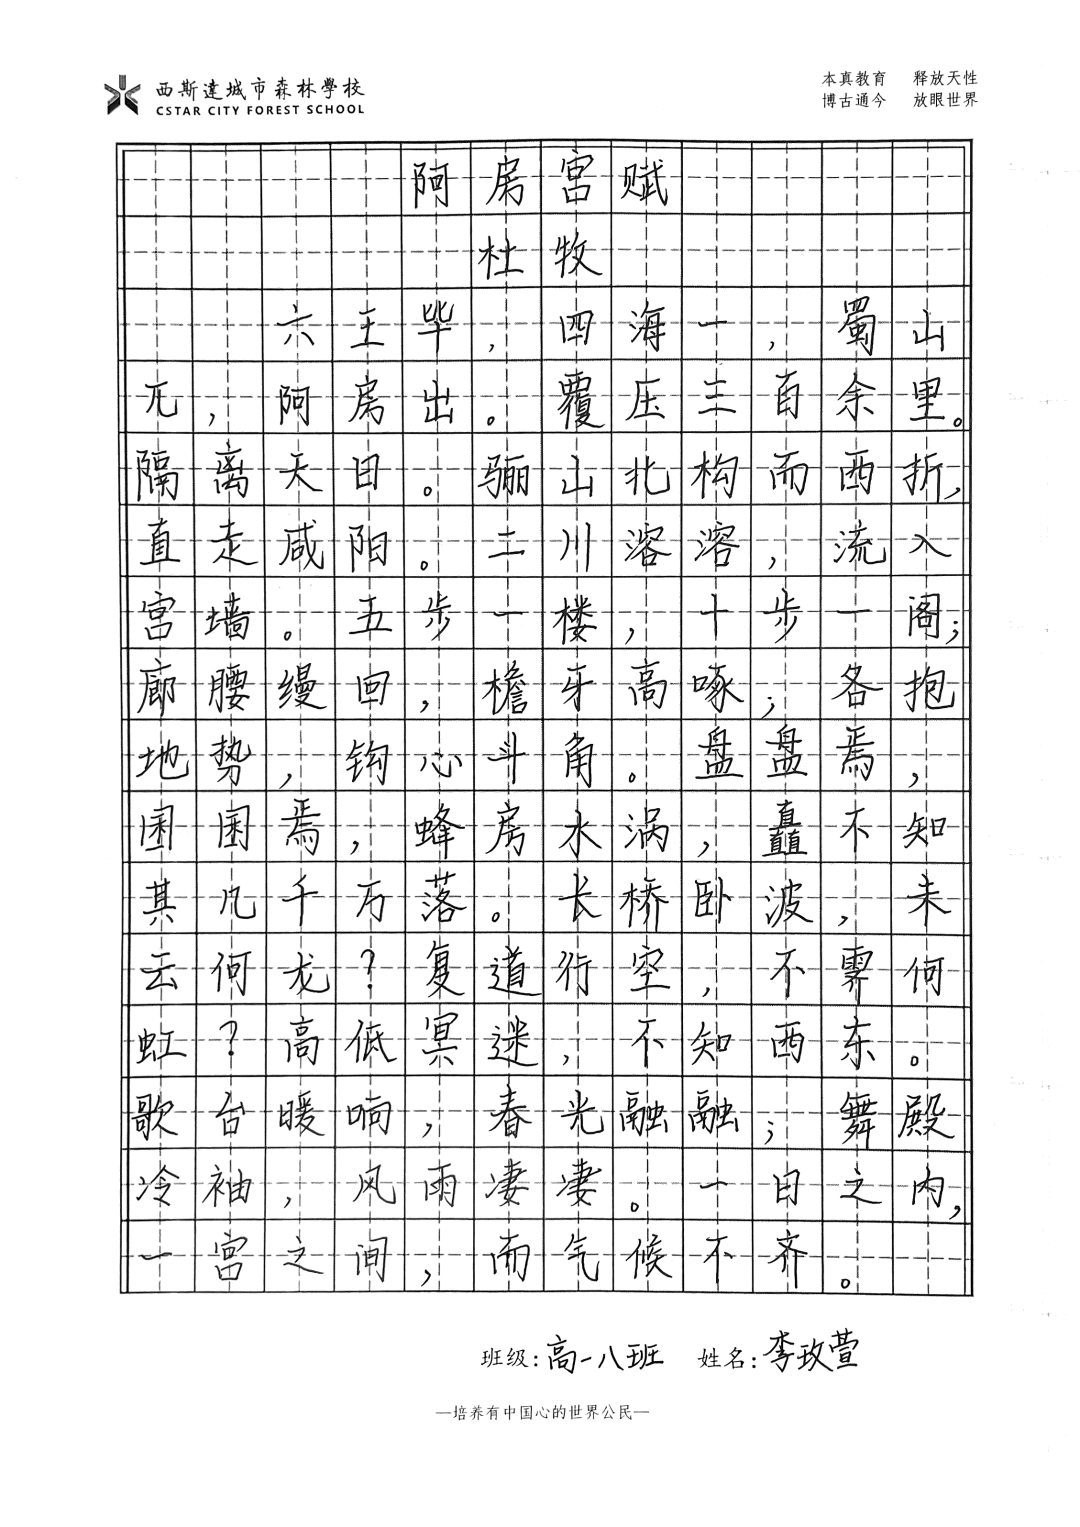 西斯達城市森林學校
CSTAR CITY FOREST SCHOOL
本真教育 释放天性
博古通今 放眼世界
阿房宫赋
杜牧
六王毕,四海一,蜀山
兀,阿房出。覆压三百余里。
隔离天日。骊山北构而西折,
直走咸阳。二川溶溶,流入
宫墙。五步一楼,十步一阁;
廊腰缦回,檐牙高啄;各抱
地势,钩心斗角。盘盘焉,
囷囷焉,蜂房水涡,矗不知
其几千万落。长桥卧波,未
云何龙?复道行空,不霁何
虹?高低冥迷,不知西东。
歌台暖响,春光融融;舞殿
冷袖,风雨凄凄。一日之内,
一宫之间,而气候不齐。
班级:高一八班 姓名:李玫萱
—培养有中国心的世界公民—